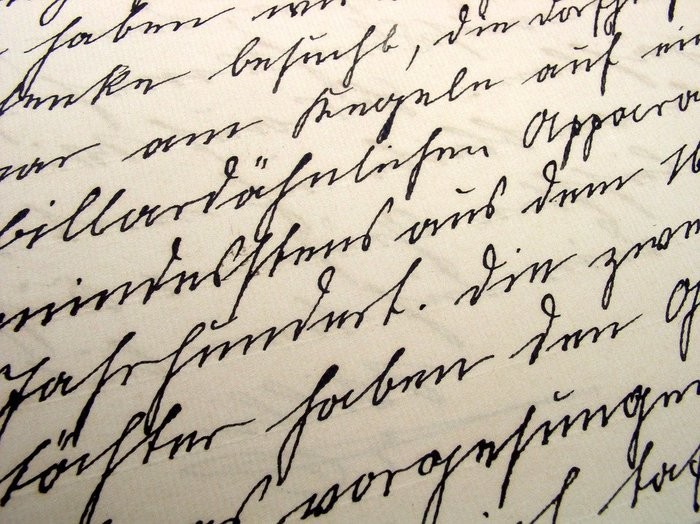 haben wi
denke besucht, die dorf
war am Kegeln auf ei
billardähnlichen Appara
mindestens aus dem 16
Jahrhundert. Die zwe
töchter haben den G
vorgesungen